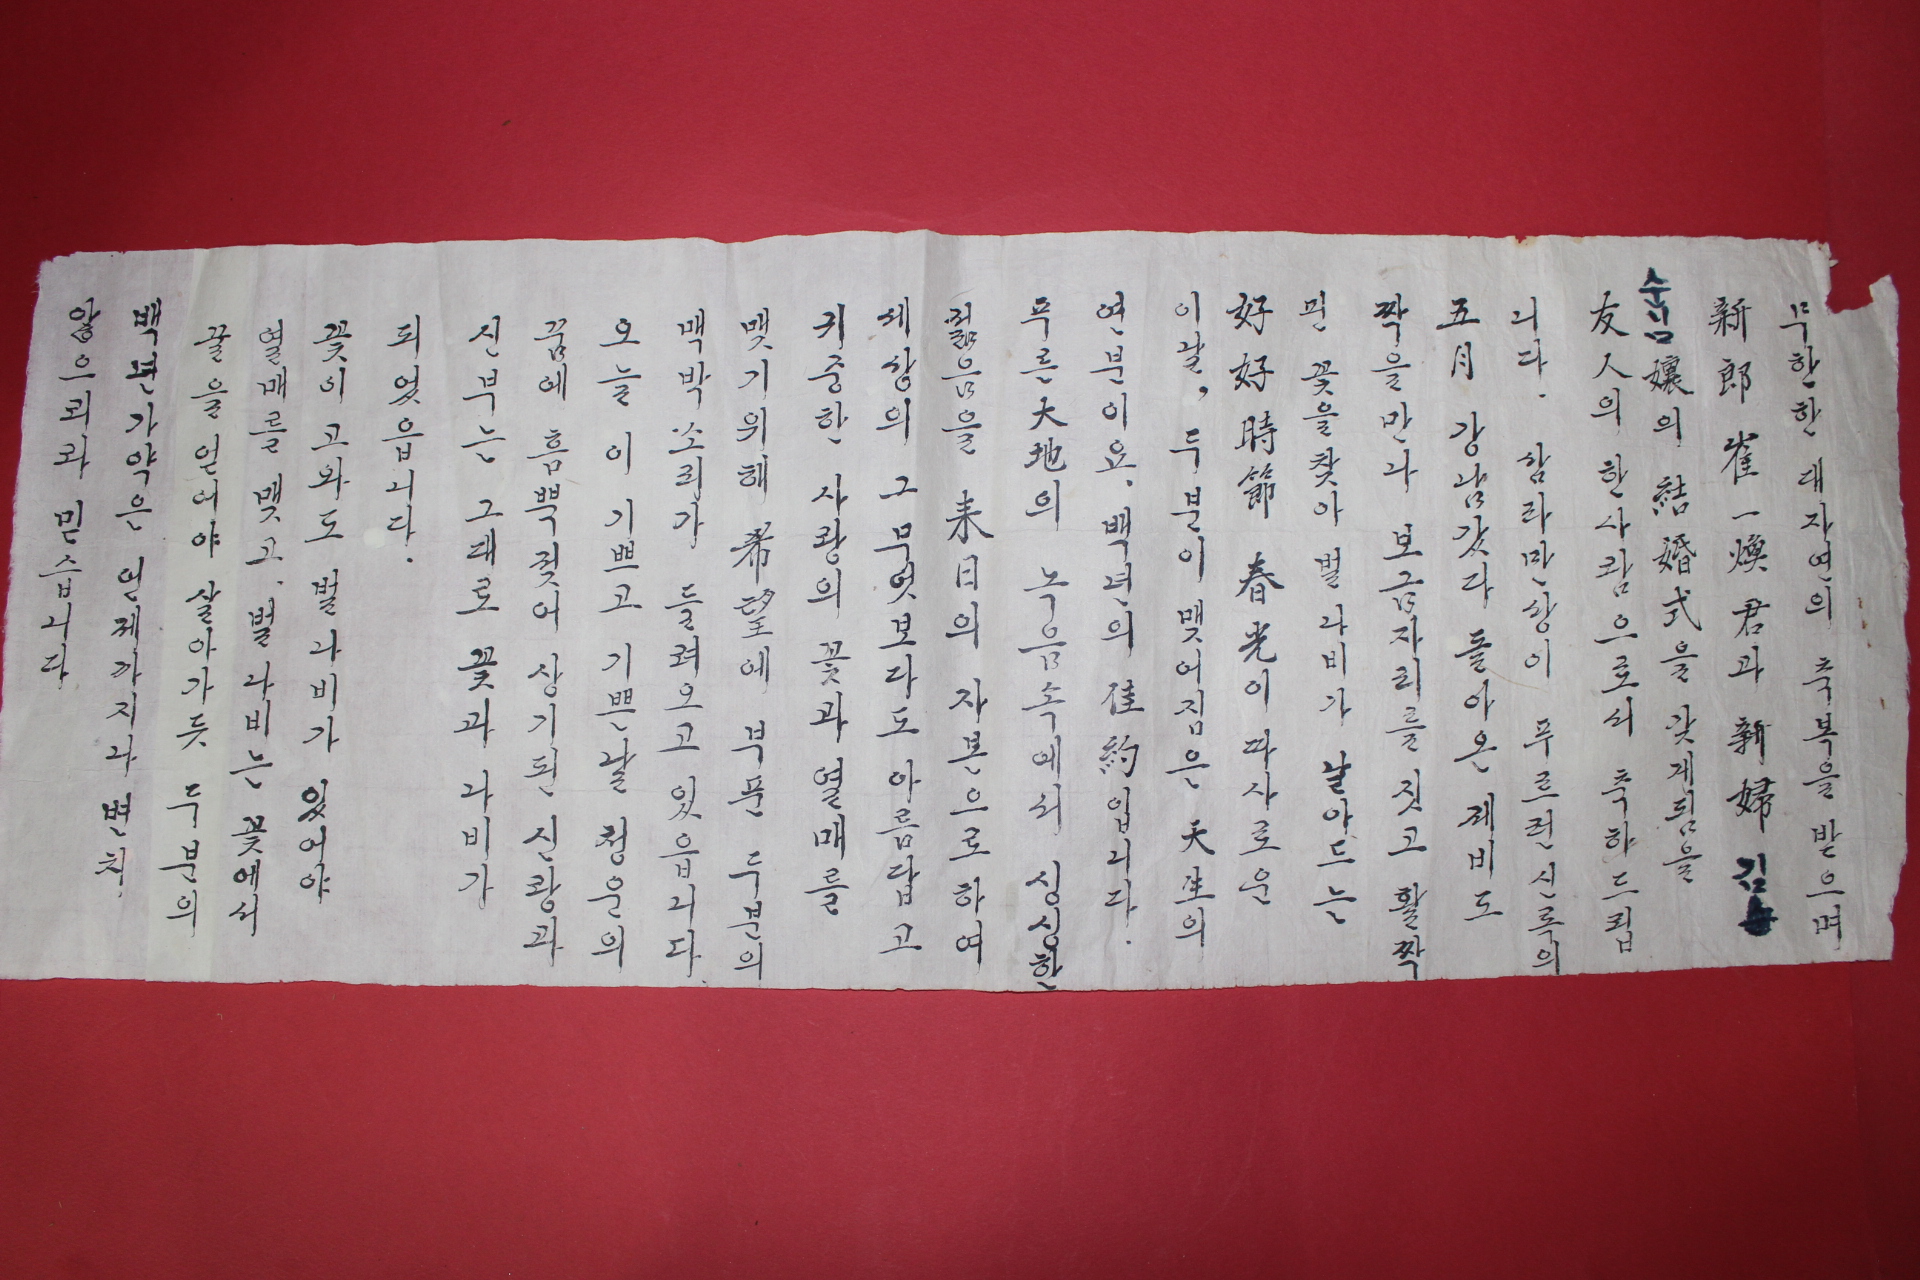 무한한 대자연의 축복을 받으며
新郎 崔一煥君과 新婦 김
순님孃의 結婚式을 갖게됨을
友人의 한사람으로서 축하드립
니다. 삼라만상이 푸르런신록의
五月 강남갔다 돌아온 제비도
짝을만나 보금자리를 짓고 활짝
핀 꽃을찾아 벌나비가 날아드는
好好時節 春光이 따사로운
이날, 두분이 맺어짐은 天生의
연분이요, 백년의 佳約입니다.
푸른大地의 녹음속에서 싱싱한
젊음을 来日의 자본으로하여
세상의 그 무엇보다도 아름답고
귀중한 사랑의 꽃과 열매를
맺기위해 希望에 부푼 두분의
맥박소리가 들려오고 있읍니다
오늘 이 기쁘고 기쁜날 청운의
꿈에 흠뻑젖어 상기된 신랑과
신부는 그대로 꽃과 나비가
되었읍니다.
꽃이 고와도 벌나비가 있어야
열매를 맺고. 벌나비는 꽃에서
꿀을 얻어야 살아가듯 두분의
백년가약은 언제까지나 변치
않으리라 믿습니다